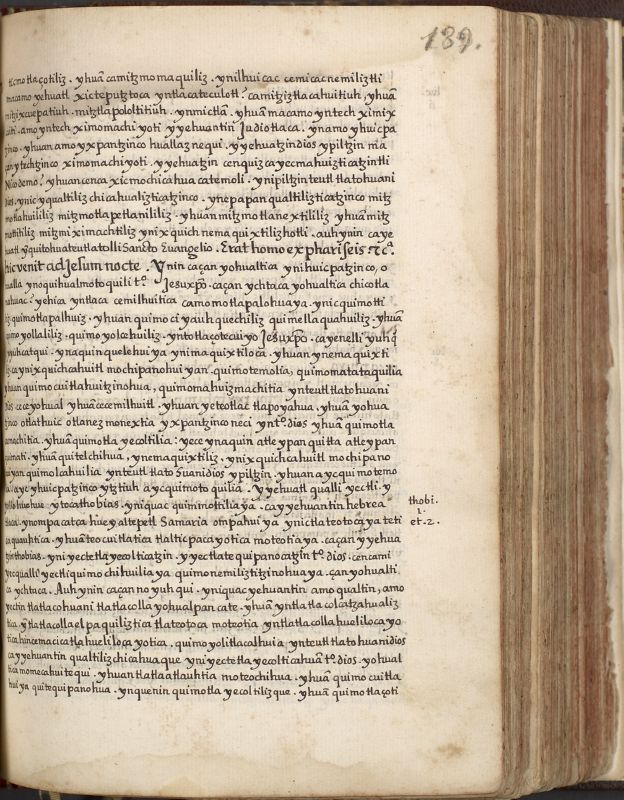 139.
ticmotlaçotiliz . yhuã camitzmomaquiliz . yn ilhuicac cemicac nemiliztli
macamo yehuatl xicteputztoca yn tlacateculotl? camitziztlacahuitiuh , yhuã
mitzixcuepatiuh . mitztlapololtitiuh . yn mictlã . yhuã macamo yntech ximix
cuiti . amo yntech ximomachiyoti yyehuantin Judiotlaca . yn amo yhuicpa
tzinco . yhuan amo yxpantzinco huallaznequi . yyehuatzin dios ypiltzin ma
çan ytechtzinco ximomachiyoti . yyehuatzin cenquizcayecmahuizticatzintli
Nicodemo? yhuan cenca xicmochicahuacatemoli . yn ipiltzin teutl tlatohuani
dios . yn ic yqualtiliz chicahualizticatzinco . yn epapan qualtilizticatzinco mitz
motlahuililiz mitzmotlapetlanililiz . yhuan mitzmotlanextililiz yhuã mitz
mottitiliz mitzmiximachtiliz yn ixquich nemauiztilizhotli . auh ynin ca ye
huatl yquitohua teutlatolli Sancto Euangelio . Erat homo ex phariseis &c.ª
hic venit ad Jesum nocte . Ynin caçan yohualtica yn ihuicpatzinco , o
hualla ynoquihualmotoquili t.º Jesuxpõ . caçan ychtaca yohualtica chicotla
nahuac? yehica yn tlaca cemilhuitica camo motlapalohuaya . yn ic quimotti
liz quimotlapalhuiz . yhuan quimociyauhquechiliz quimellaquahuiliz . yhuã
quimoyollaliliz . quimoyolcehuiliz . yn totlaçotecuiyo Jesuxpõ . ca ye nelli yuhq̃
yuhcatqui . yn aquin quelehuiya yn imauiztiloca . yhuan yn emauizti
liz ca yn ixquichcahuitl mochipa nohuiyan . quimotemolia , quimomatataquilia
yhuan quimocuitlahuitzinohua , quimomahuizmachitia yn teutl tlatohuani
dios ceceyohual yhuã cecemilhuitl . yhuan yeteotlac tlapoyahua . yhuã yohua
tzinco otlathuic otlanez monextia yxpantzinco neci yn t.º dios yhuã quimotla
machitia . yhuã quimotlayecoltilia : yece ynaquin atle ypan quitta atle ypan
quimati . yhuã quitelchihua , ynemauiztiliz . yn ixquichcahuitl mochipa no
huiyan quimolcahuilia yn teutl tlatohuani dios ypiltzin . yhuan aycquimotemo
lia aye yhuicpatzinco ytztiuh aycquimotoquilia . Yyehuatl qualli yectli . y
yollohuehue ytoca thobias . yn iquac quiminottiliaya . ca yyehuantin hebrea
tlaca . yn ompa catca huey altepetl Samaria ompahuiya yn ic tlateotocaya teti
ca quauhtica . yhuã teocuitlatica tlalticpacayotica moteotiaya . caçan yyehua
tzin thobias . yn iyectetlayecolticatzin . yyectlatequipanocatzin t.º dios . cencami
yecqualli yectli quimochihuiliaya quimonemiliztitzinohuaya . çan yohualti
ca ychtaca . Auh ynin caçan no yuhqui . yn iquac yehuantin amo qualtin , amo
yectin tlatlacohuani tlatlacolla yohualpan cate . yhuã yn tlatlacolcatzahualiz
tica . ytlatlacollaelpaquiliztica tlateotoca moteotia yn tlatlacollahuelilocayo
tica hincemacicatlahuelilocayotica . quimoyolitlacalhuia yn teutl tlatohuani dios
ca yyehuantin qualtiliz chicahuaque . yn iyectetlayecolticahuã t.º dios . yohual
tica momecahuitequi . yhuan tlatlatlauhtia moteochihua . yhuã quimocuitla
huiya quitequipanohua . yn quenin quimotlayecoltilizque . yhuã quimotlaçoti
thobi.
1.
et. 2.